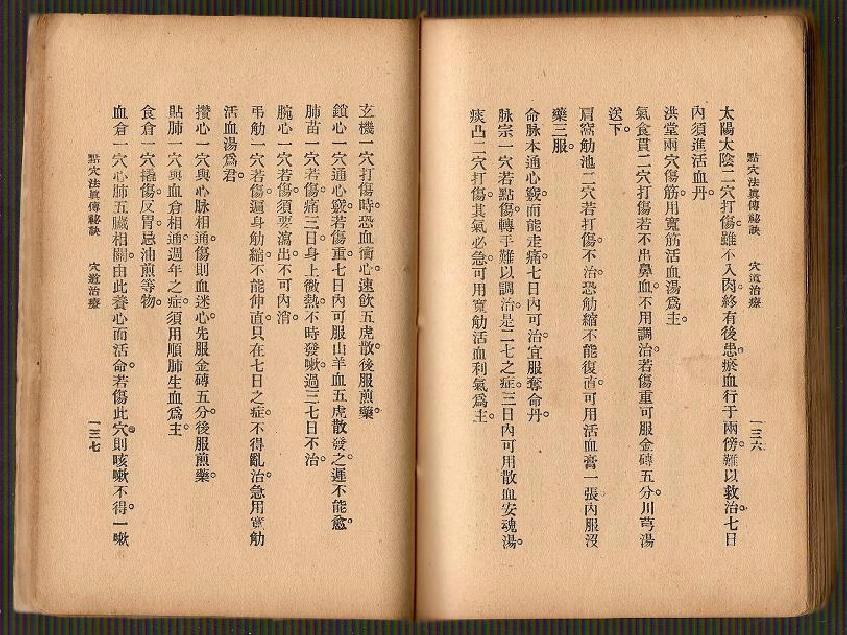 點穴法眞傳秘訣　穴道治療　一三六
太陽太陰二穴打傷。雖不入肉。終有後患。瘀血行于兩傍。難以救治。七日
內須進活血丹。
洪堂兩穴傷筋。用寬筋活血湯爲主。
氣食貫二穴打傷。若不出鼻血。不用調治。若傷重可服金磚五分。川芎湯
送下。
肩窩觔池二穴。若打傷。不治。恐觔縮不能復直。可用活血膏一張。內服沒
藥三服。
命脉本通心竅。而能走痛。七日內可治。宜服奪命丹。
脉宗一穴。若點傷轉手難以調治。是二七之症。三日內可用散血安魂湯。
痰凸二穴打傷。其氣必急。可用寬觔活血利氣爲主。
玄機一穴打傷時。恐血衝心。速飲五虎散。後服煎藥。
鎖心一穴。通心竅。若傷重七日內可服山羊血五虎散發之。遲不能愈。
肺苗一穴。若傷痛三日。身上微熱。不時發嗽。過三七日不治。
腕心一穴。若傷須要瀉出。不可內消。
弔觔一穴。若傷遍身觔縮。不能伸直。只在七日之症。不得亂治。急用寬觔
活血湯爲君。
攢心一穴。與心脉相通。傷則血迷心。先服金磚五分。後服煎藥。
貼肺一穴。與血倉相通。週年之症。須用順肺生血爲主。
食倉一穴。撬傷。反胃。忌油煎等物。
血倉一穴。心肺五臟相關。由此養心而活命。若傷此穴。則咳嗽不得。一嗽
點穴法眞傳秘訣　穴道治療　一三七